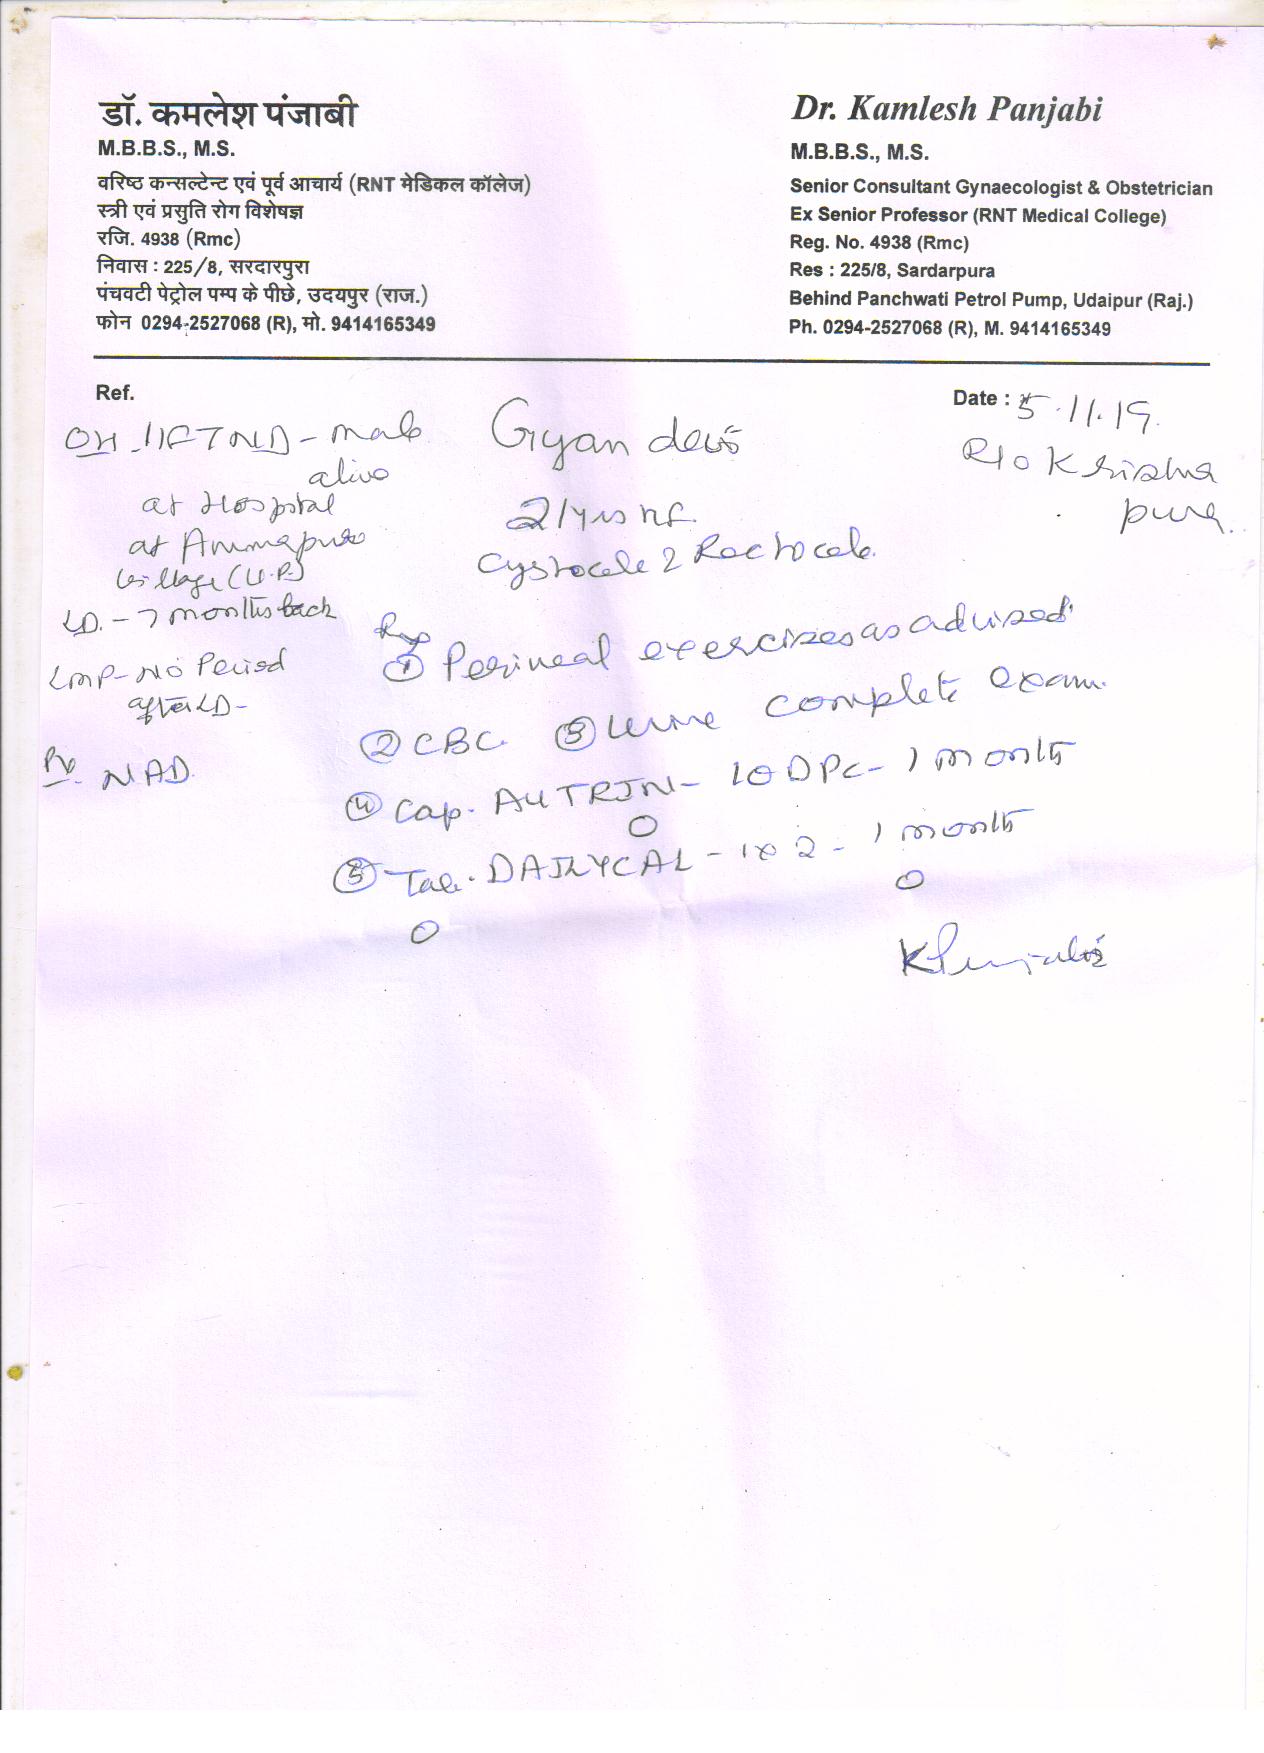 डॉ. कमलेश पंजाबी
M.B.B.S., M.S.
वरिष्ठ कन्सल्टेन्ट एवं पूर्व आचार्य (RNT मेडिकल कॉलेज)
स्त्री एवं प्रसुति रोग विशेषज्ञ
रजि. 4938 (Rmc)
निवास : 225/8, सरदारपुरा
पंचवटी पेट्रोल पम्प के पीछे, उदयपुर (राज.)
फोन 0294-2527068 (R), मो. 9414165349
Dr. Kamlesh Panjabi
M.B.B.S., M.S.
Senior Consultant Gynaecologist & Obstetrician
Ex Senior Professor (RNT Medical College)
Reg. No. 4938 (Rmc)
Res : 225/8, Sardarpura
Behind Panchwati Petrol Pump, Udaipur (Raj.)
Ph. 0294-2527068 (R), M. 9414165349
Ref.
Date : 5.11.19.
R/o Krishna
pura.
OH - 1 FTND - male
alive
at Hospital
at
village (U.P.)
LD. - 7 months back
LMP - No Period
after LD -
PV. NAD.
Gyan devi
21 yrs
Cystocele Rectocele.
① Perineal exercises as advised.
② CBC. ③ Urine complete exam.
④ Cap. AUTRIN - 1 OD PC - 1 month
⑤ Tab. DAILYCAL - 1 x 2 - 1 month
KPunjabi